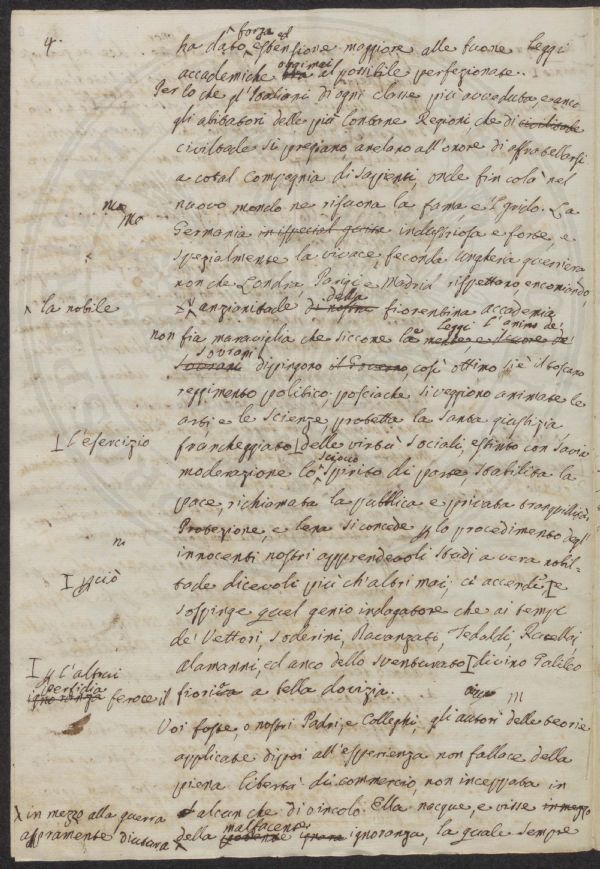 4.
forza ed
ha dato estensione maggiore alle buone leggi
oggimai
accademiche al possibile perfezionate.
Per lo che gl'Italiani di ogni classe più avveduta, e anco
gli abitatori delle più lontane Regioni, che di civiltade
civiltade si pregiano, anelano all'onore di affratellarsi
a cotal Compagnia di Sapienti, onde fin colà nel
nuovo mondo ne risuona la fama e il grido. La
Germania in special guisa industriosa e forte, e
spezialmente la vivace, feconda Ungheria guerriera
non che Londra Parigi e Madrid rispettano encomiando,
la nobile
della
anzianitade di nostra fiorentina accademia
leggi l'animo de'
non fia maraviglia che siccome la mente e il cuore de'
Sovrani
Sovrani dipingono il Governo, così ottimo si è il toscano
reggimento politico posciachè si veggiono animate le
arti e le scienze protetta la santa giustizia
l'esercizio
francheggiato delle virtù sociali, estinto con savia
sciocco
moderazione lo spirito di parte, stabilita la
pace, richiamata la pubblica e privata tranquillità,
Protezione, e lena si concede per lo procedimento degl'
innocenti nostri apprendevoli studj a vera nobil-
perciò
tade dicevoli più ch'altri mai; ci accende e
sospinge quel genio indagatore che ai tempi
de' Vettori, Soderini, Davanzati, Tedaldi, Rucellaj
per l'altrui
Alamanni, ed anco dello sventurato divino Galileo
perfidia
ignoranza feroce, il
fioriva a bella dovizia.
Voi foste, o nostri Padri, e Colleghi, gli autori delle teorie
applicate di poi all'esperienza non fallace della
piena libertà di commercio, non inceppata in
in mezzo alla guerra
alcun che di vincolo. Ella nacque, e visse in mezzo
aspramente diuturna
malfacente
della ignoranza, la quale sempre